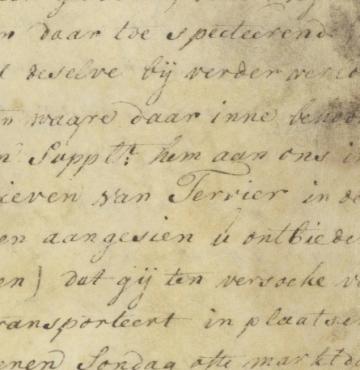 daar toe specteerende
deselve bij verder
waare daar inne
Supplt. hem aan ons
van Terrier in de
en aangesien u ontbiede
en) dat gij ten versoeke
ransporteert in plaatse
enen Sondag ofte marktd